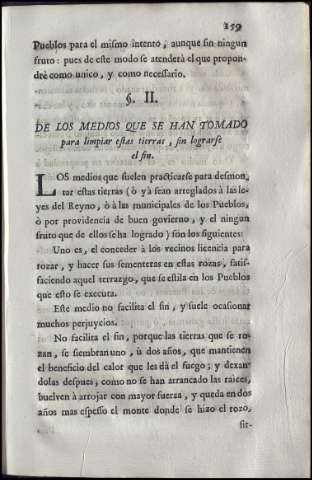 159
Pueblos para el mismo intento, aunque sin ningun
fruto: pues de este modo se atenderà el que propon-
drè como unico, y como necessario.
§. II.
DE LOS MEDIOS QUE SE HAN TOMADO
para limpiar estas tierras, sin lograrse
el fin.
LOS medios que suelen practicarse para desmon-
tar estas tierras (ò yà sean arreglados à las le-
yes del Reyno, ò à las municipales de los Pueblos,
ò por providencia de buen govierno, y el ningun
fruto que de ellos se ha logrado) son los siguientes:
Uno es, el conceder à los vecinos licencia para
rozar, y hacer sus sementeras en estas rozas, satis-
faciendo aquel terrazgo, que se estila en los Pueblos
que esto se executa.
Este medio no facilita el fin, y suele ocasionar
muchos perjuycios.
No facilita el fin, porque las tierras que se ro-
zan, se siembran uno, ù dos años, que mantienen
el beneficio del calor que les dà el fuego; y dexan-
dolas despues, como no se han arrancado las raices,
buelven à arrojar con mayor fuerza, y queda en dos
años mas espesso el monte donde se hizo el rozo,
sir-